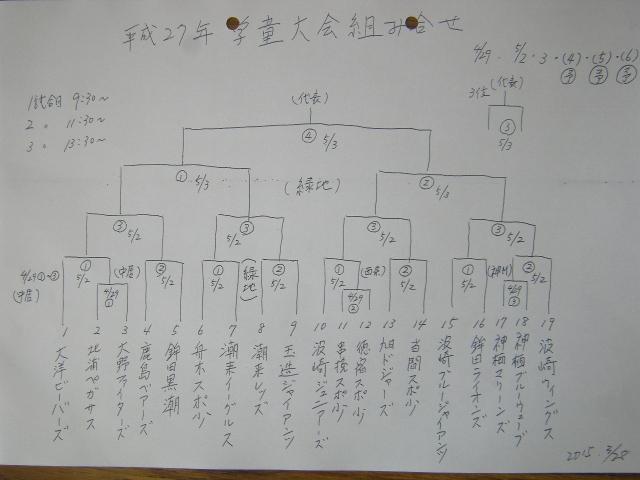 平成27年 学童大会組み合せ
4/29 . 5/2 . 3 . (4) . (5) . (6)
予 予 予
1試合目 9:30〜
2 〃 11:30〜
3 〃 13:30〜
(代表)
④ 5/3
3位 (代表)
③
5/3
① 5/3
(緑地)
② 5/3
③ 5/2
③ 5/2
③ 5/2
③ 5/2
4/29①〜③
① 5/2
② 5/2
① 5/2
(緑地)
② 5/2
① 5/2
② 5/2
① 5/2
② 5/2
4/29 ①
4/29 ②
4/29
1 大洋ビーバーズ
2 北浦ペガサス
3 大野ファイターズ
4 鹿島ベアーズ
5 鉾田黒潮
6 舟木スポ少
7 潮来イーグルス
8 潮来レッズ
9 玉造ジャイアンツ
10 波崎ジュニアーズ
11 串挽スポ少
12 徳宿スポ少
13 旭ドジャーズ
14 当間スポ少
15 波崎ブルージャイアンツ
16 鉾田ライオンズ
17 神栖マリーンズ
18 神栖ブルーウェーブ
19 波崎ウィングス
2015. 3/28